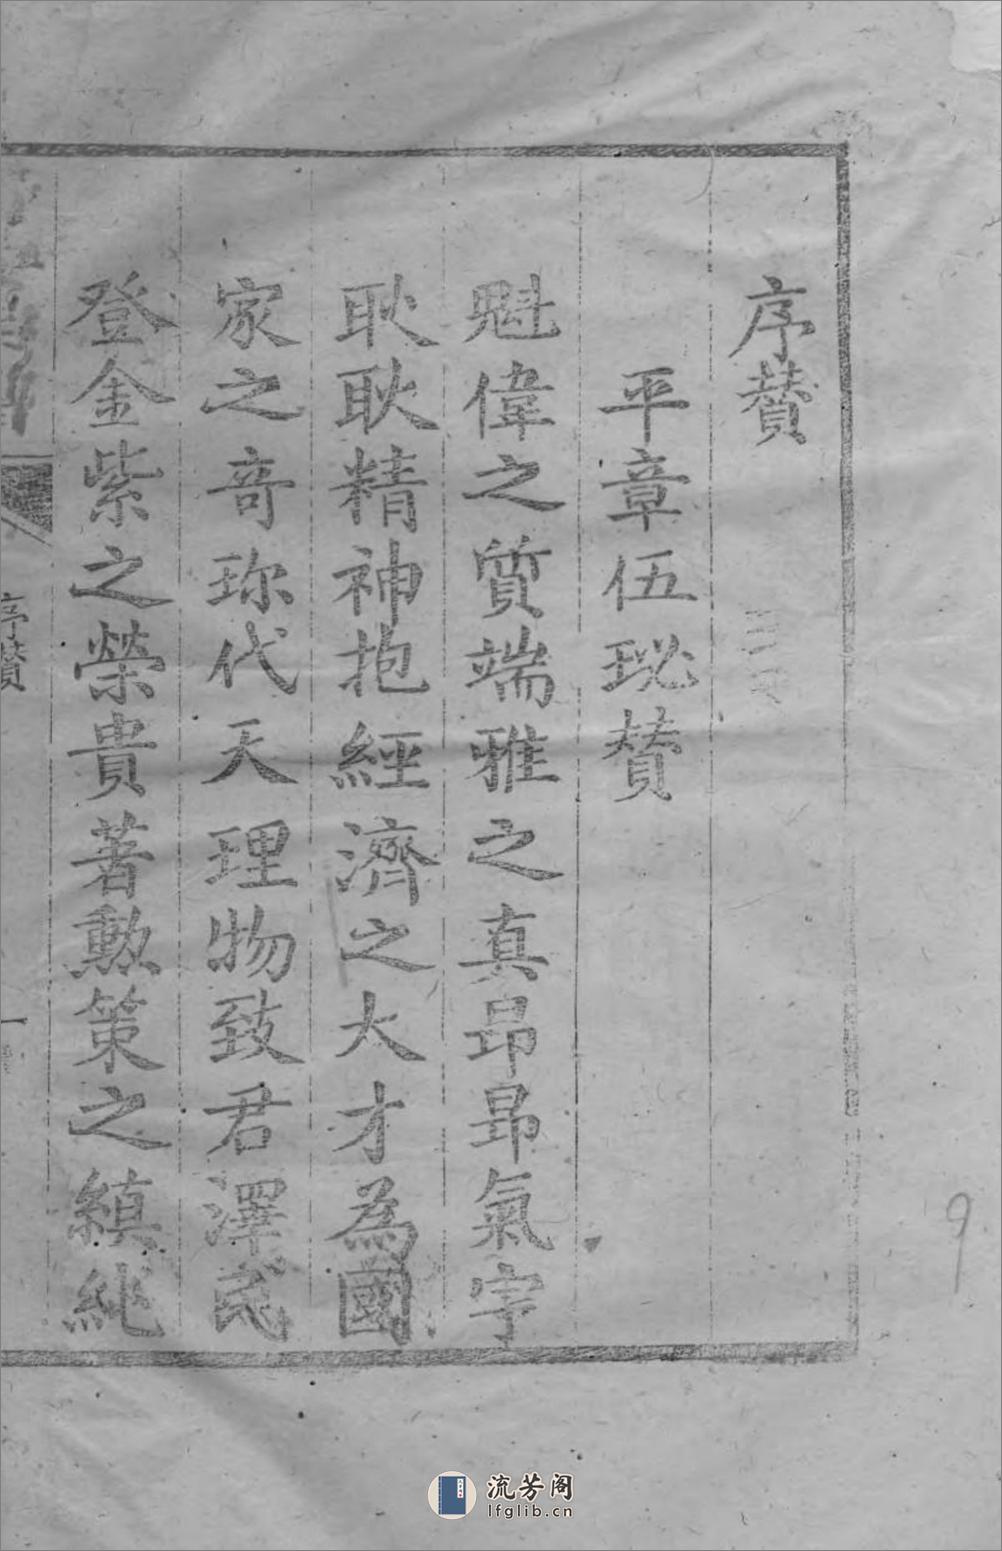 序賛
平章伍珌賛
魁偉之質端雅之真昂昂氣宇
耿耿精神抱經濟之大才為國
家之竒珎代天理物致君澤民
登金紫之榮貴著勲策之縝紕
序賛
一
流芳阁
lfglib.cn
9